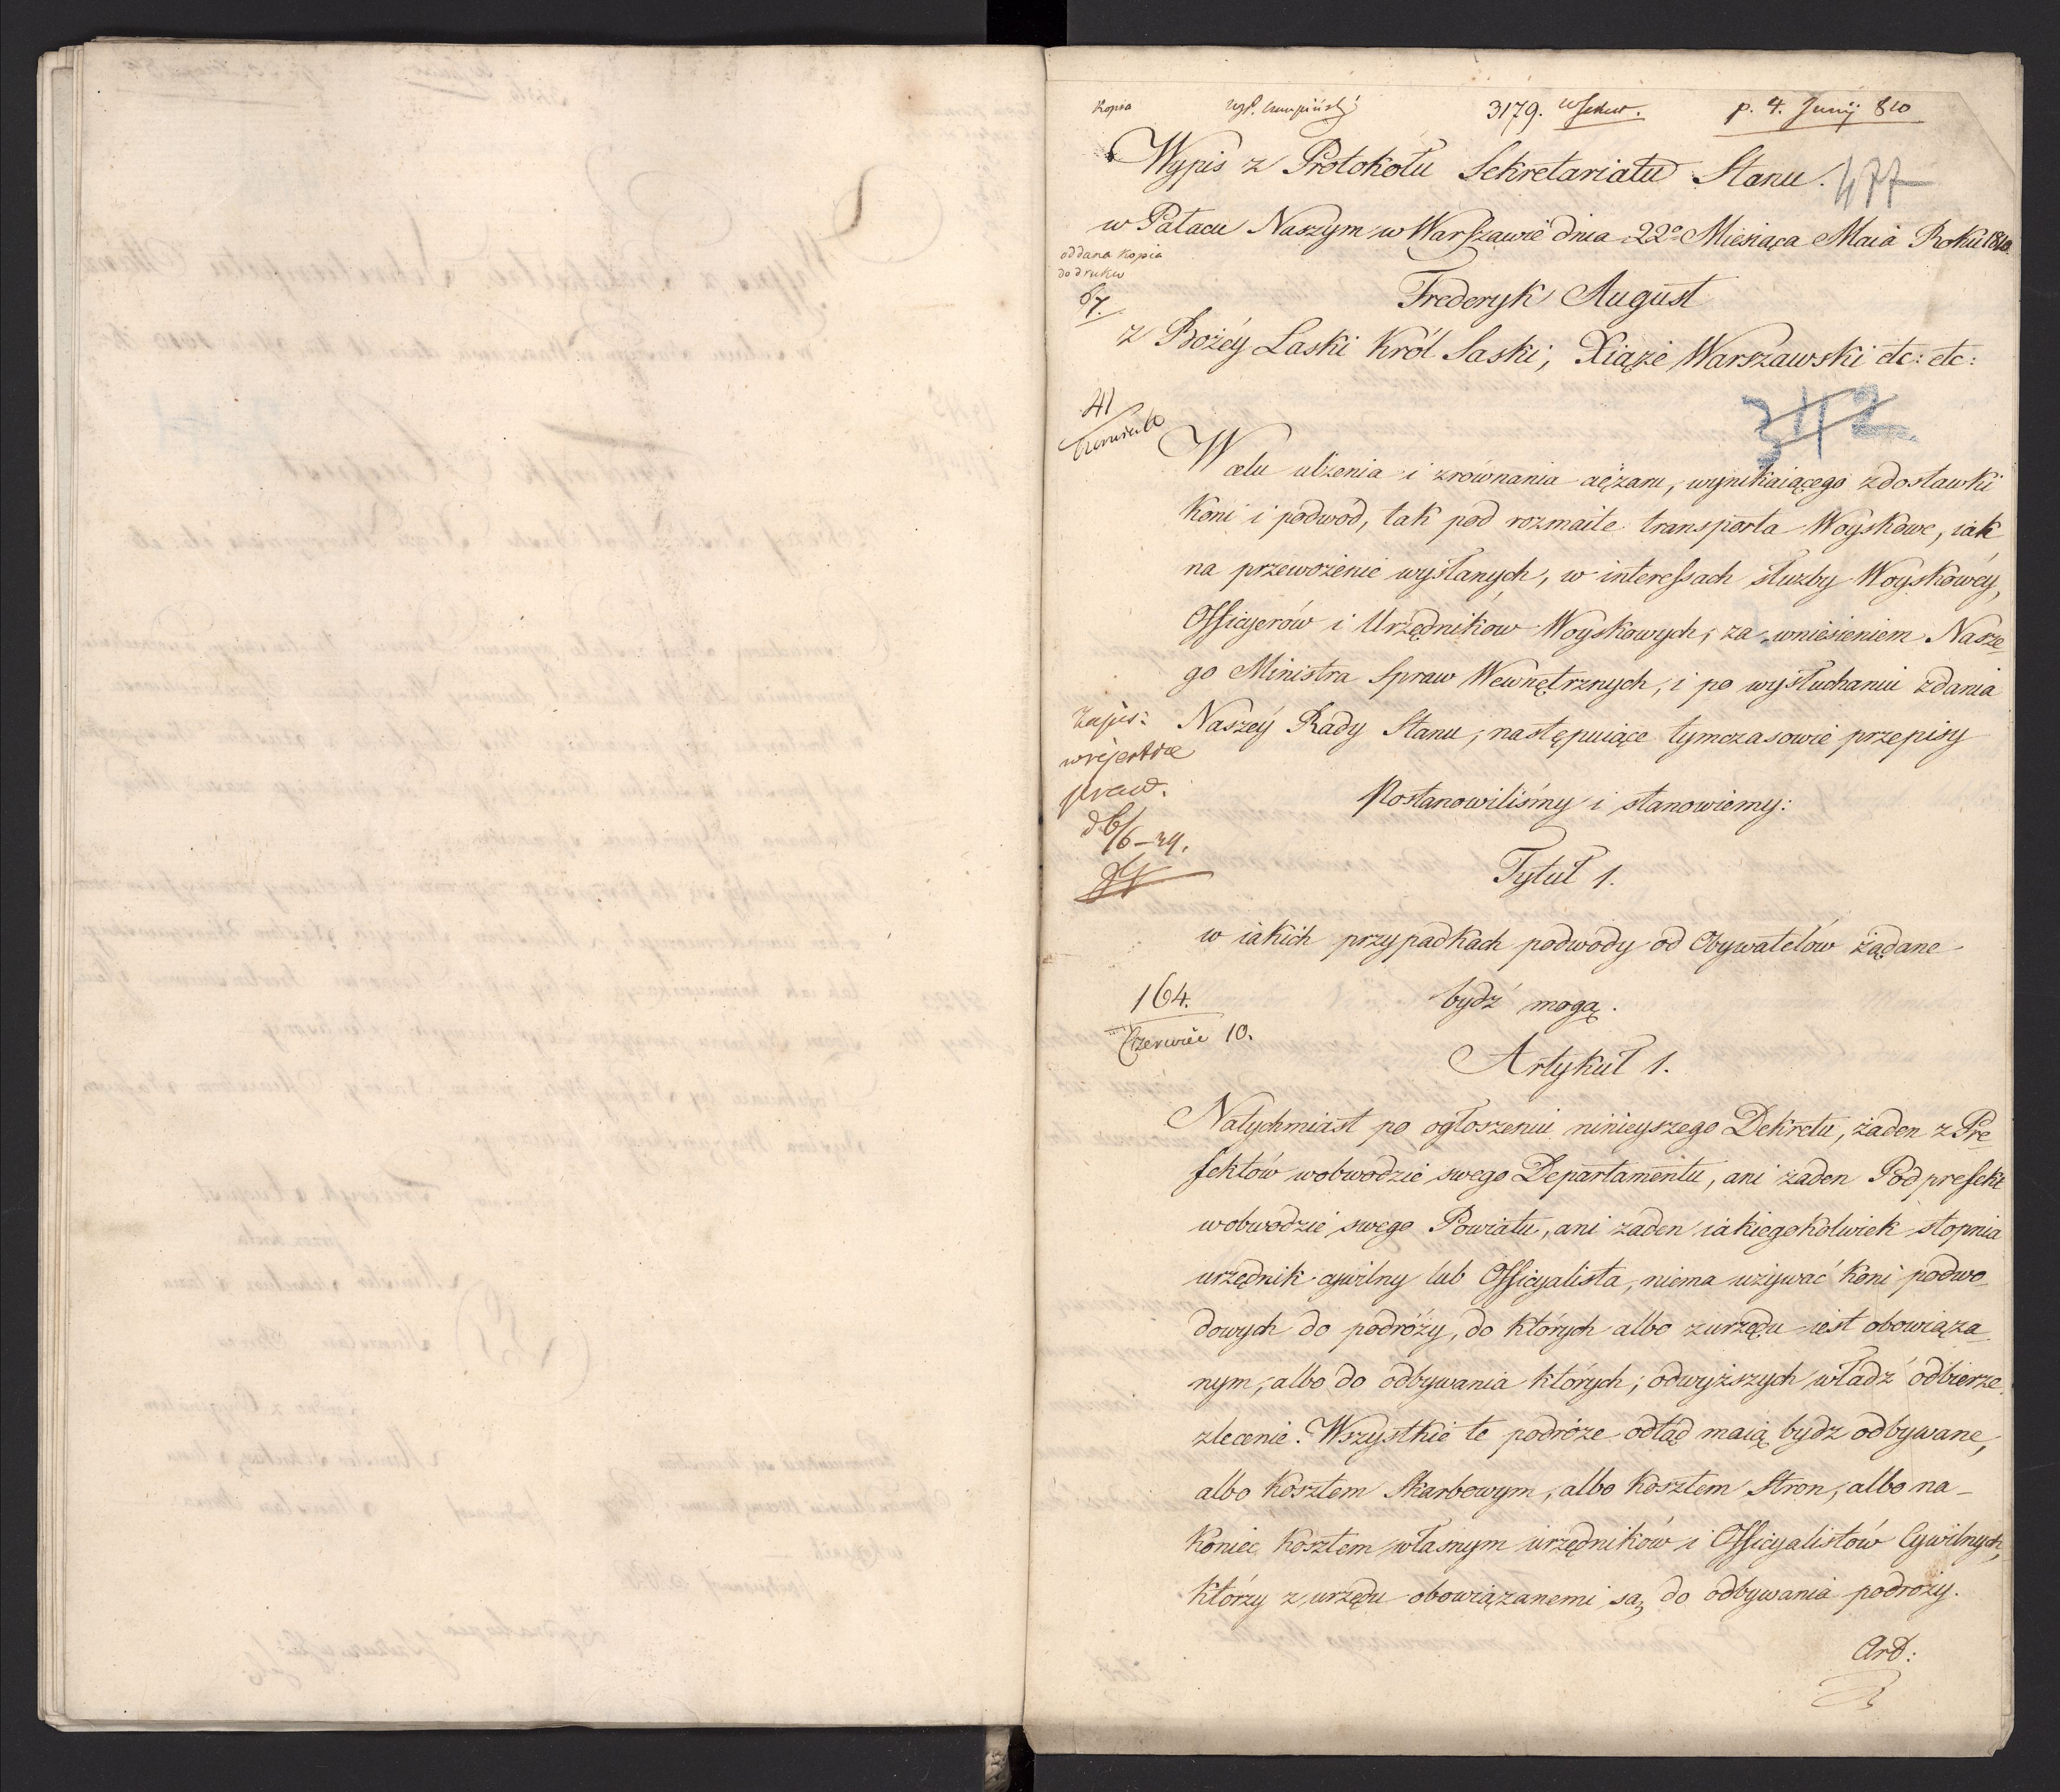 Kopia
3179.
p. 4. Junij 810
Wypis z Protokołu Sekretariatu Stanu.
477
w Pałacu Naszym w Warszawie dnia 22º Miesiąca Maia Roku 1810.
oddana Kopia
do druku
67.
Frederyk August
z Bożéy Łaski Król Saski, Xiąże Warszawski etc: etc:
41
342
W celu ulżenia i zrównania ciężaru, wynikaiącego z dostawki
Koni i podwod, tak pod rozmaite transporta Woyskowe, iak
na przewożenie wysłanych, w interessach służby Woyskowéy,
Officyerów i Urzędnikow Woyskowych, za wniesieniem Nasze-
go Ministra Spraw Wewnętrznych, i po wysłuchaniu zdania
Naszéy Rady Stanu, następuiące tymczasowie przepisy
Zapis:
w rejestrze
praw.
d. 6/6 – 29.
Postanowiliśmy i stanowiemy:
Tytuł 1.
w iakich przypadkach podwody od Obywatelów żądane
bydź mogą.
164.
Czerwiec 10.
Artykuł 1.
Natychmiast po ogłoszeniu ninieyszego Dekretu, żaden z Pre-
fektów w obwodzie swego Departamentu, ani żaden Podprefekt
w obwodzie swego Powiatu, ani żaden iakiegokolwiek stopnia
urzędnik cywilny lub Officyalista, niema używać Koni podwo-
dowych do podróży, do których albo z urzędu iest obowiąza-
nym, albo do odbywania których, od wyższych władz odbierze
zlecenie. Wszystkie te podróże odtąd maią bydz odbywane,
albo Kosztem Skarbowym, albo Kosztem Stron, albo na-
Koniec Kosztem własnym urzędników i Officyalistów Cywilnych,
Którzy z urzędu obowiązanemi są, do odbywania podróży.
Art: